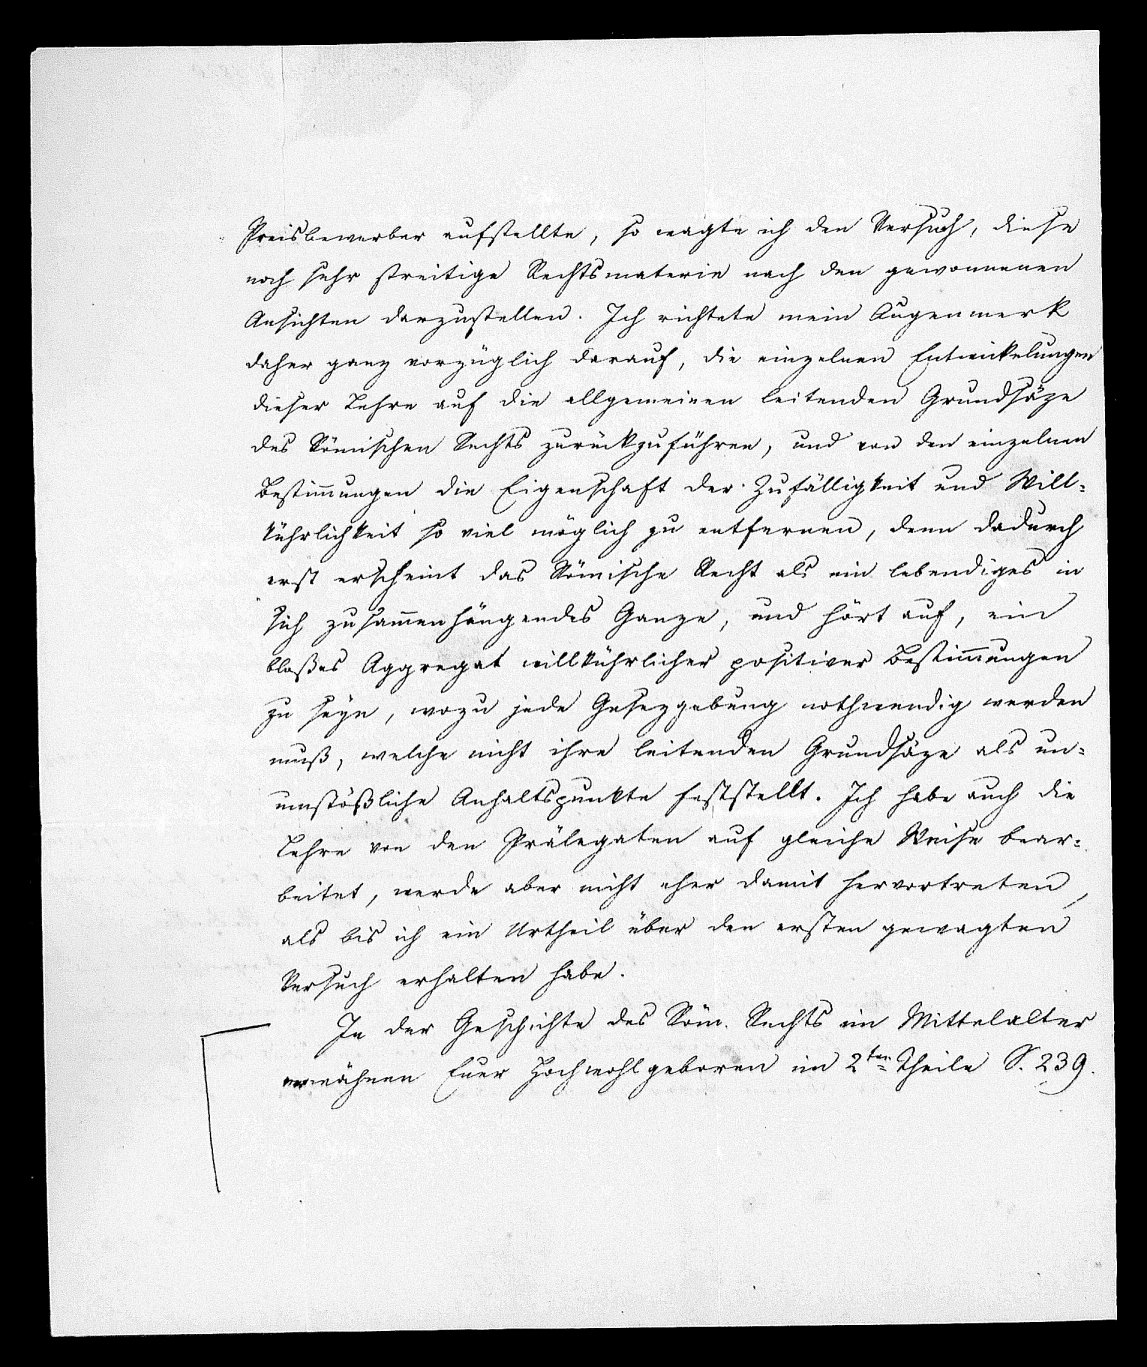 Preisbewerber aufstellte, so wagte ich den Versuch, diese
noch sehr streitige Rechtsmaterie nach den gewonnenen
Ansichten darzustellen. Ich richtete mein Augenmerk
daher ganz vorzüglich darauf, die einzelnen Entwickelungen
dieser Lehre auf die allgemeinen leitenden Grundsäze
des Römischen Rechts zurückzuführen, und von den einzelnen
Bestim̄ungen die Eigenschaft der Zufälligkeit und Will-
kührlichkeit so viel möglich zu entfernen, denn dadurch
erst erscheint das Römische Recht als ein lebendiges in
sich zusam̄enhängendes Ganze, und hört auf, ein
bloßes Aggregat willkührlicher positiver Bestim̄ungen
zu seyn, wozu jede Gesezgebung nothwendig werden
muß, welche nicht ihre leitenden Grundsäze als un-
umstößliche Anhaltspunkte feststellt. Ich habe auch die
Lehre von den Prälegaten auf gleiche Weise bear-
beitet, werde aber nicht eher damit hervortreten,
als bis ich ein Urtheil über den ersten gewagten
Versuch erhalten habe.
In der Geschichte des Röm. Rechts im Mittelalter
erwähnen Euer Hochwohlgeboren im 2ten Theile S. 239.